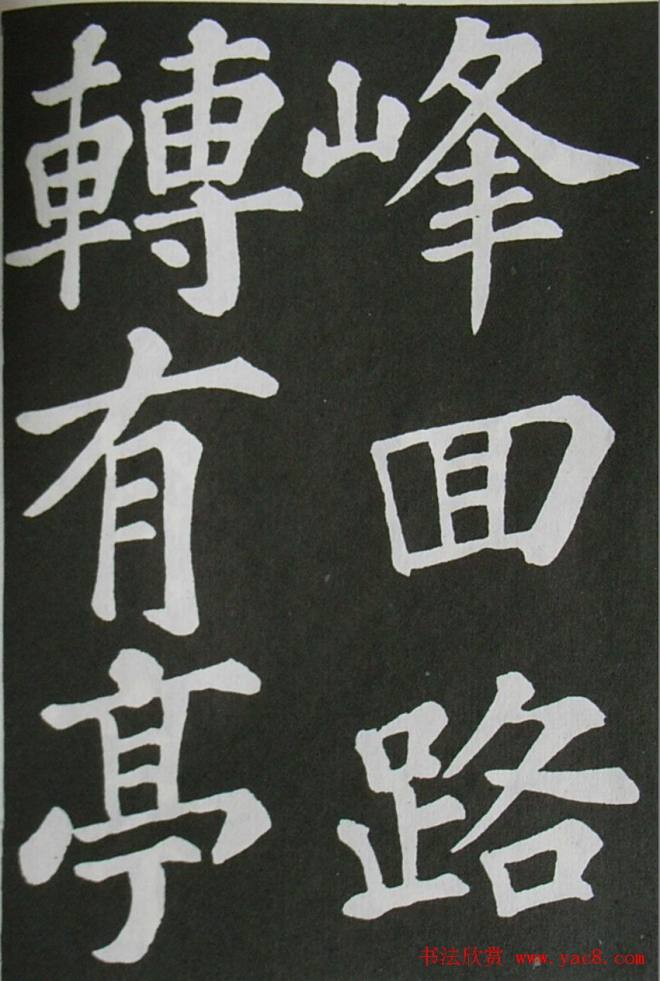 峰回路
轉有亭
书法欣赏 www.yac8.com